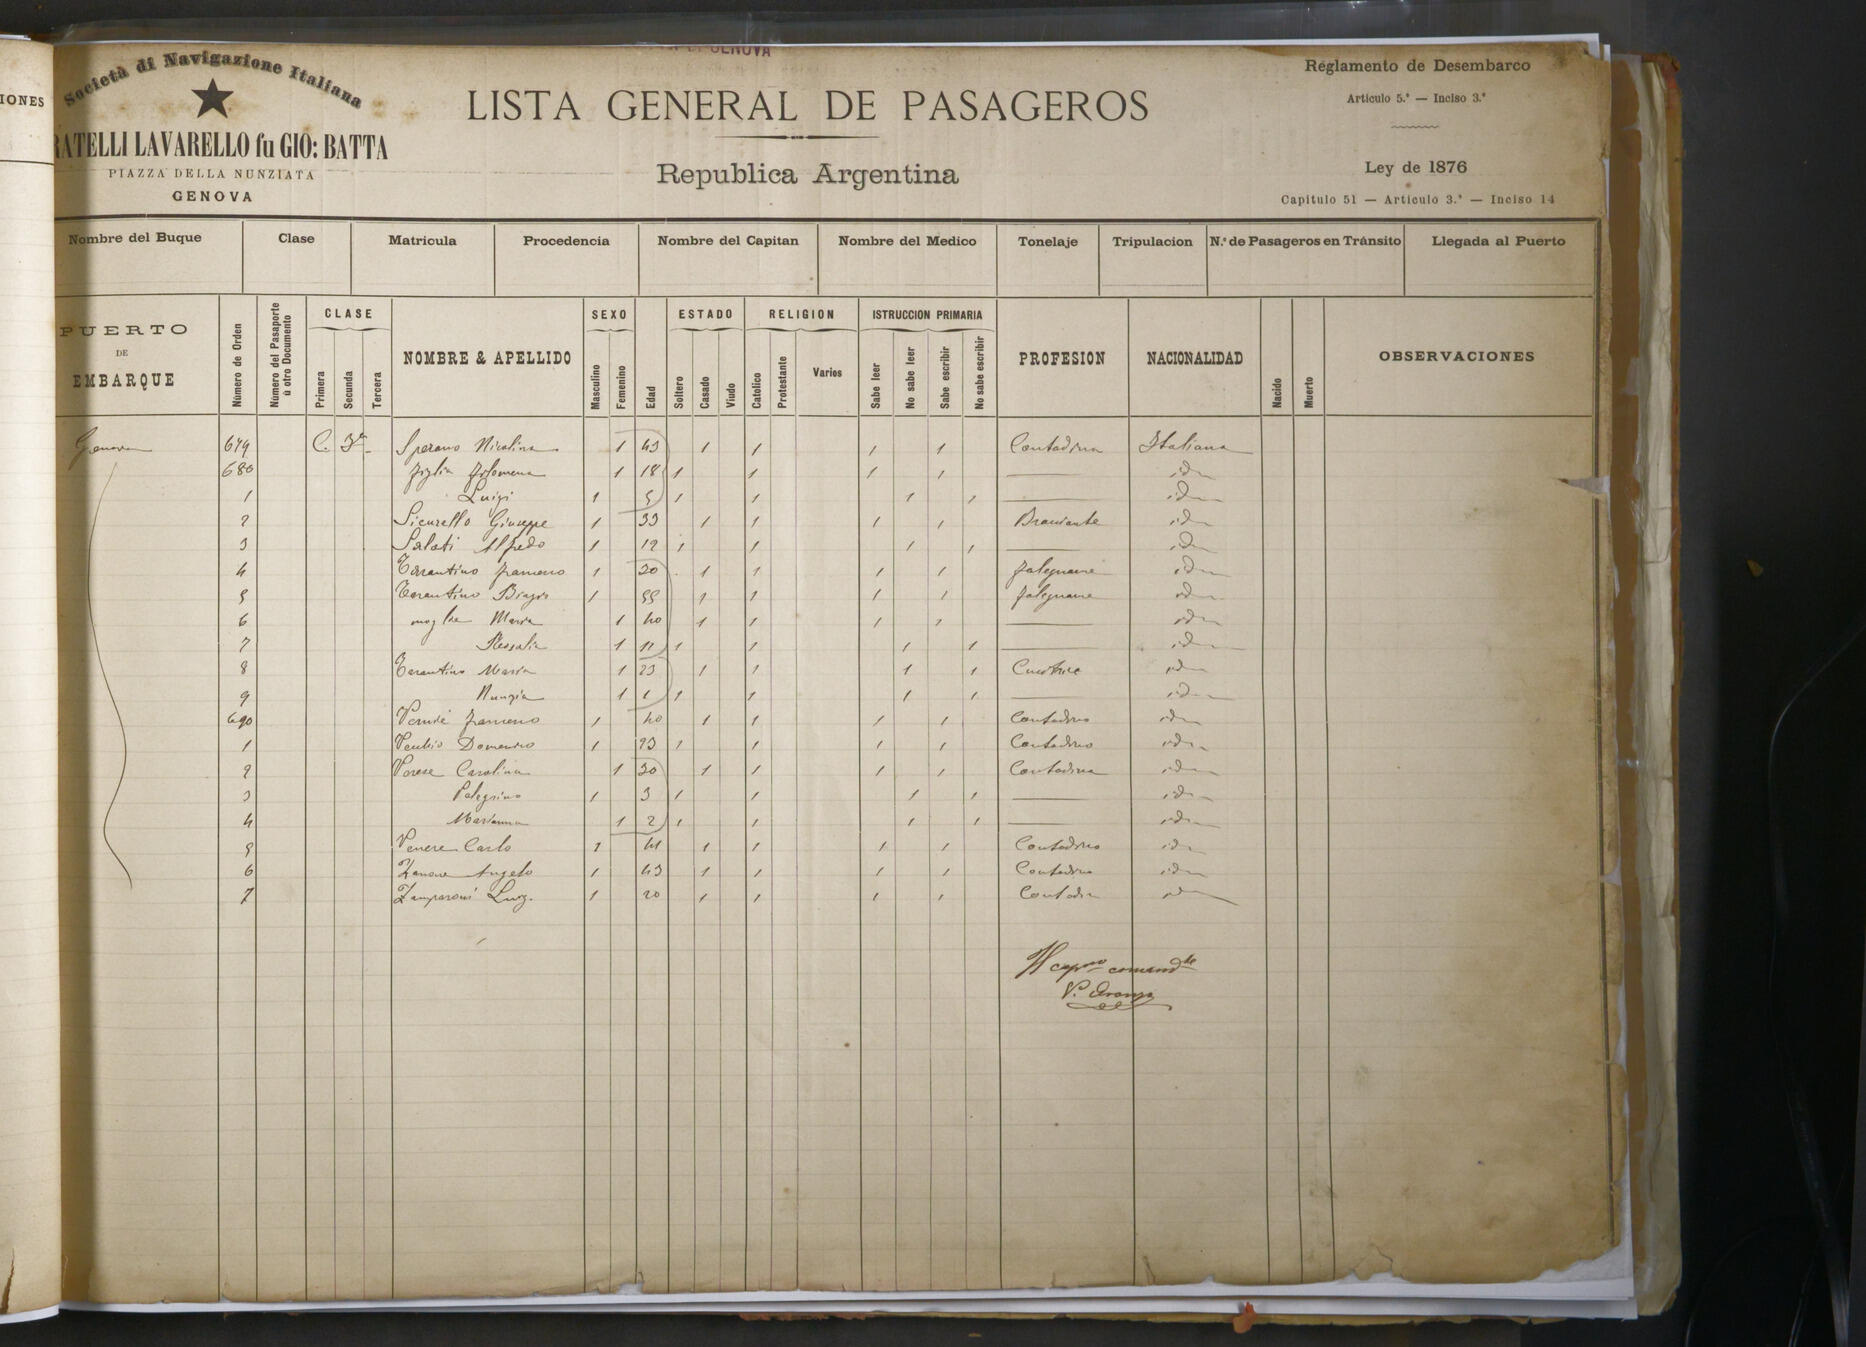 IONES
DI GENOVA
Società di Navigazione Italiana
RATELLI LAVARELLO fu GIO: BATTA
PIAZZA DELLA NUNZIATA
GENOVA
LISTA GENERAL DE PASAGEROS
Republica Argentina
Reglamento de Desembarco
Articulo 5.º — Inciso 3.º
Ley de 1876
Capitulo 51 — Articulo 3.º — Inciso 14
Nombre del Buque Clase Matricula Procedencia Nombre del Capitan Nombre del Medico Tonelaje Tripulacion N.º de Pasageros en Tránsito Llegada al Puerto
PUERTO DE EMBARQUE Número de Orden Número del Pasaporte ú otro Documento CLASE Primera Secunda Tercera NOMBRE & APELLIDO SEXO Masculino Femenino Edad ESTADO Soltero Casado Viudo RELIGION Catolico Protestante Varios ISTRUCCION PRIMARIA Sabe leer No sabe leer Sabe escribir No sabe escribir PROFESION NACIONALIDAD Nacido Muerto OBSERVACIONES
Genova 679 C. 3ª Sperano Nicolina 1 43 1 1 1 1 Contadina Italiana
680 figlia Filomena 1 18 1 1 1 1 id
1 Luigi 1 5 1 1 1 1 id
2 Sicurello Giuseppe 1 33 1 1 1 1 Braciante id
3 Salati Alfredo 1 12 1 1 1 1 id
4 Tarantino Francesco 1 30 1 1 1 1 falegname id
5 Tarantino Biagio 1 55 1 1 1 1 falegname id
6 moglie Maria 1 40 1 1 1 1 id
7 Rosalia 1 11 1 1 1 1 id
8 Tarantino Maria 1 23 1 1 1 1 Cucitrice id
9 Nunzia 1 1 1 1 1 1 id
690 Francesco 1 40 1 1 1 1 Contadino id
1 Domenico 1 23 1 1 1 1 Contadino id
2 Carolina 1 30 1 1 1 1 Contadina id
3 Pelegrino 1 3 1 1 1 1 id
4 Marianna 1 2 1 1 1 1 id
5 Venere Carlo 1 41 1 1 1 1 Contadino id
6 Zanone Angelo 1 43 1 1 1 1 Contadino id
7 Zamparoni Luig. 1 20 1 1 1 1 Contadin id
Il capno comandte